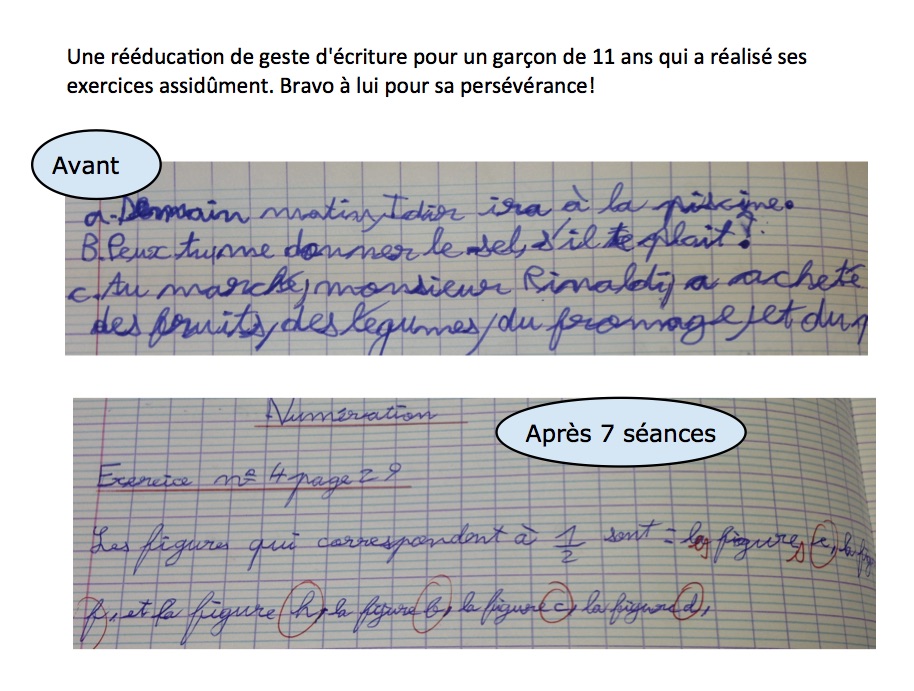 Une rééducation de geste d'écriture pour un garçon de 11 ans qui a réalisé ses
exercices assidûment. Bravo à lui pour sa persévérance!
Avant
a. Demain matin, Idir ira à la piscine.
B. Peux tu, me donner le sel, s'il te plait ?
c. Au marché, monsieur Rinaldi, a acheté
des fruits, des légumes, du fromage, et du
Numération
Après 7 séances
Exercice n° 4 page 29
Les figures qui correspondent à 1/2 sont = les figures e, la
f, et la figure h, la figure b, la figure c, la figure d,